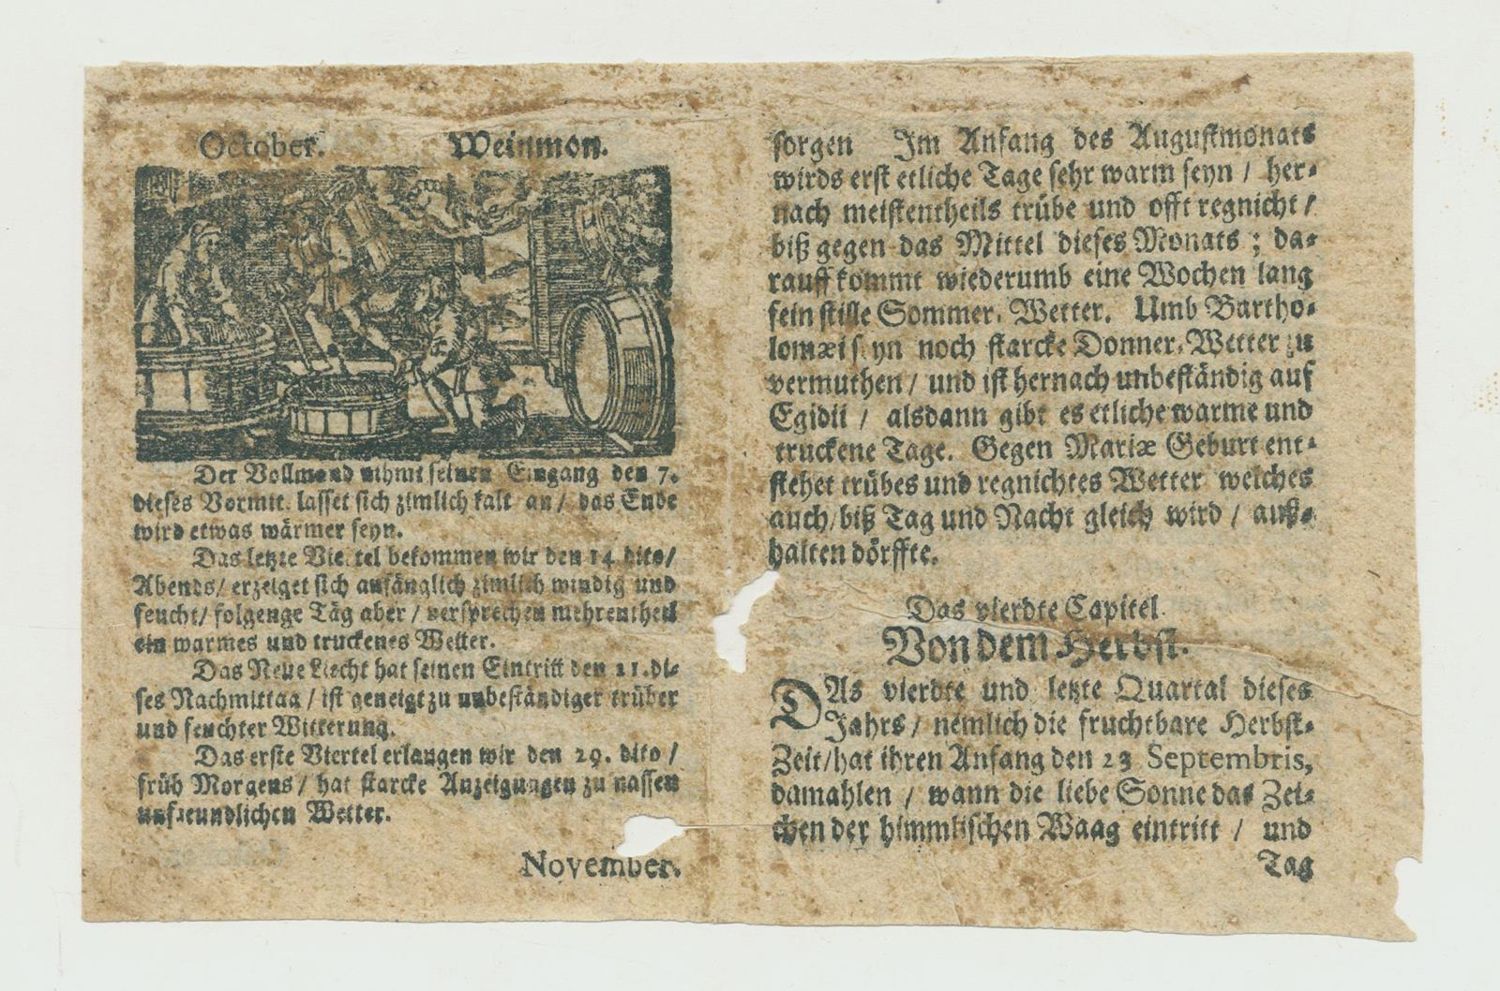 October. Weinmon.
Der Vollmond nihmt seinen Eingang den 7.
dieses Vormit. lasset sich zimlich kalt an / das Ende
wird etwas wärmer seyn.
Das letzte Viertel bekommen wir den 14 dito /
Abends / erzeiget sich anfänglich zimlich windig und
feucht / folgenge Täg aber / versprechen mehrentheil
ein warmes und truckenes Wetter.
Das Neue Liecht hat seinen Eintritt den 21. di-
ses Nachmittag / ist geneigt zu unbeständiger trüber
und feuchter Witterung.
Das erste Viertel erlangen wir den 29. dito /
früh Morgens / hat starcke Anzeigungen zu nassen
unfreundlichen Wetter.
November.
sorgen Im Anfang des Augustmonats
wirds erst etliche Tage sehr warm seyn / her-
nach meistentheils trübe und offt regnicht /
biß gegen das Mittel dieses Monats ; da-
rauff kommt wiederumb eine Wochen lang
fein stille Sommer-Wetter. Umb Bartho-
lomæi seyn noch starcke Donner-Wetter zu
vermuthen / und ist hernach unbeständig auf
Egidii / alsdann gibt es etliche warme und
truckene Tage. Gegen Mariæ Geburt ent-
stehet trübes und regnichtes Wetter welches
auch biß Tag und Nacht gleich wird / auß-
halten dörffte.
Das vierdte Capitel
Von dem Herbst.
DAs vierdte und letzte Quartal dieses
Jahrs / nemlich die fruchtbare Herbst-
Zeit / hat ihren Anfang den 23 Septembris,
damahlen / wann die liebe Sonne das Zei-
chen der himmlischen Waag eintritt / und
Tag